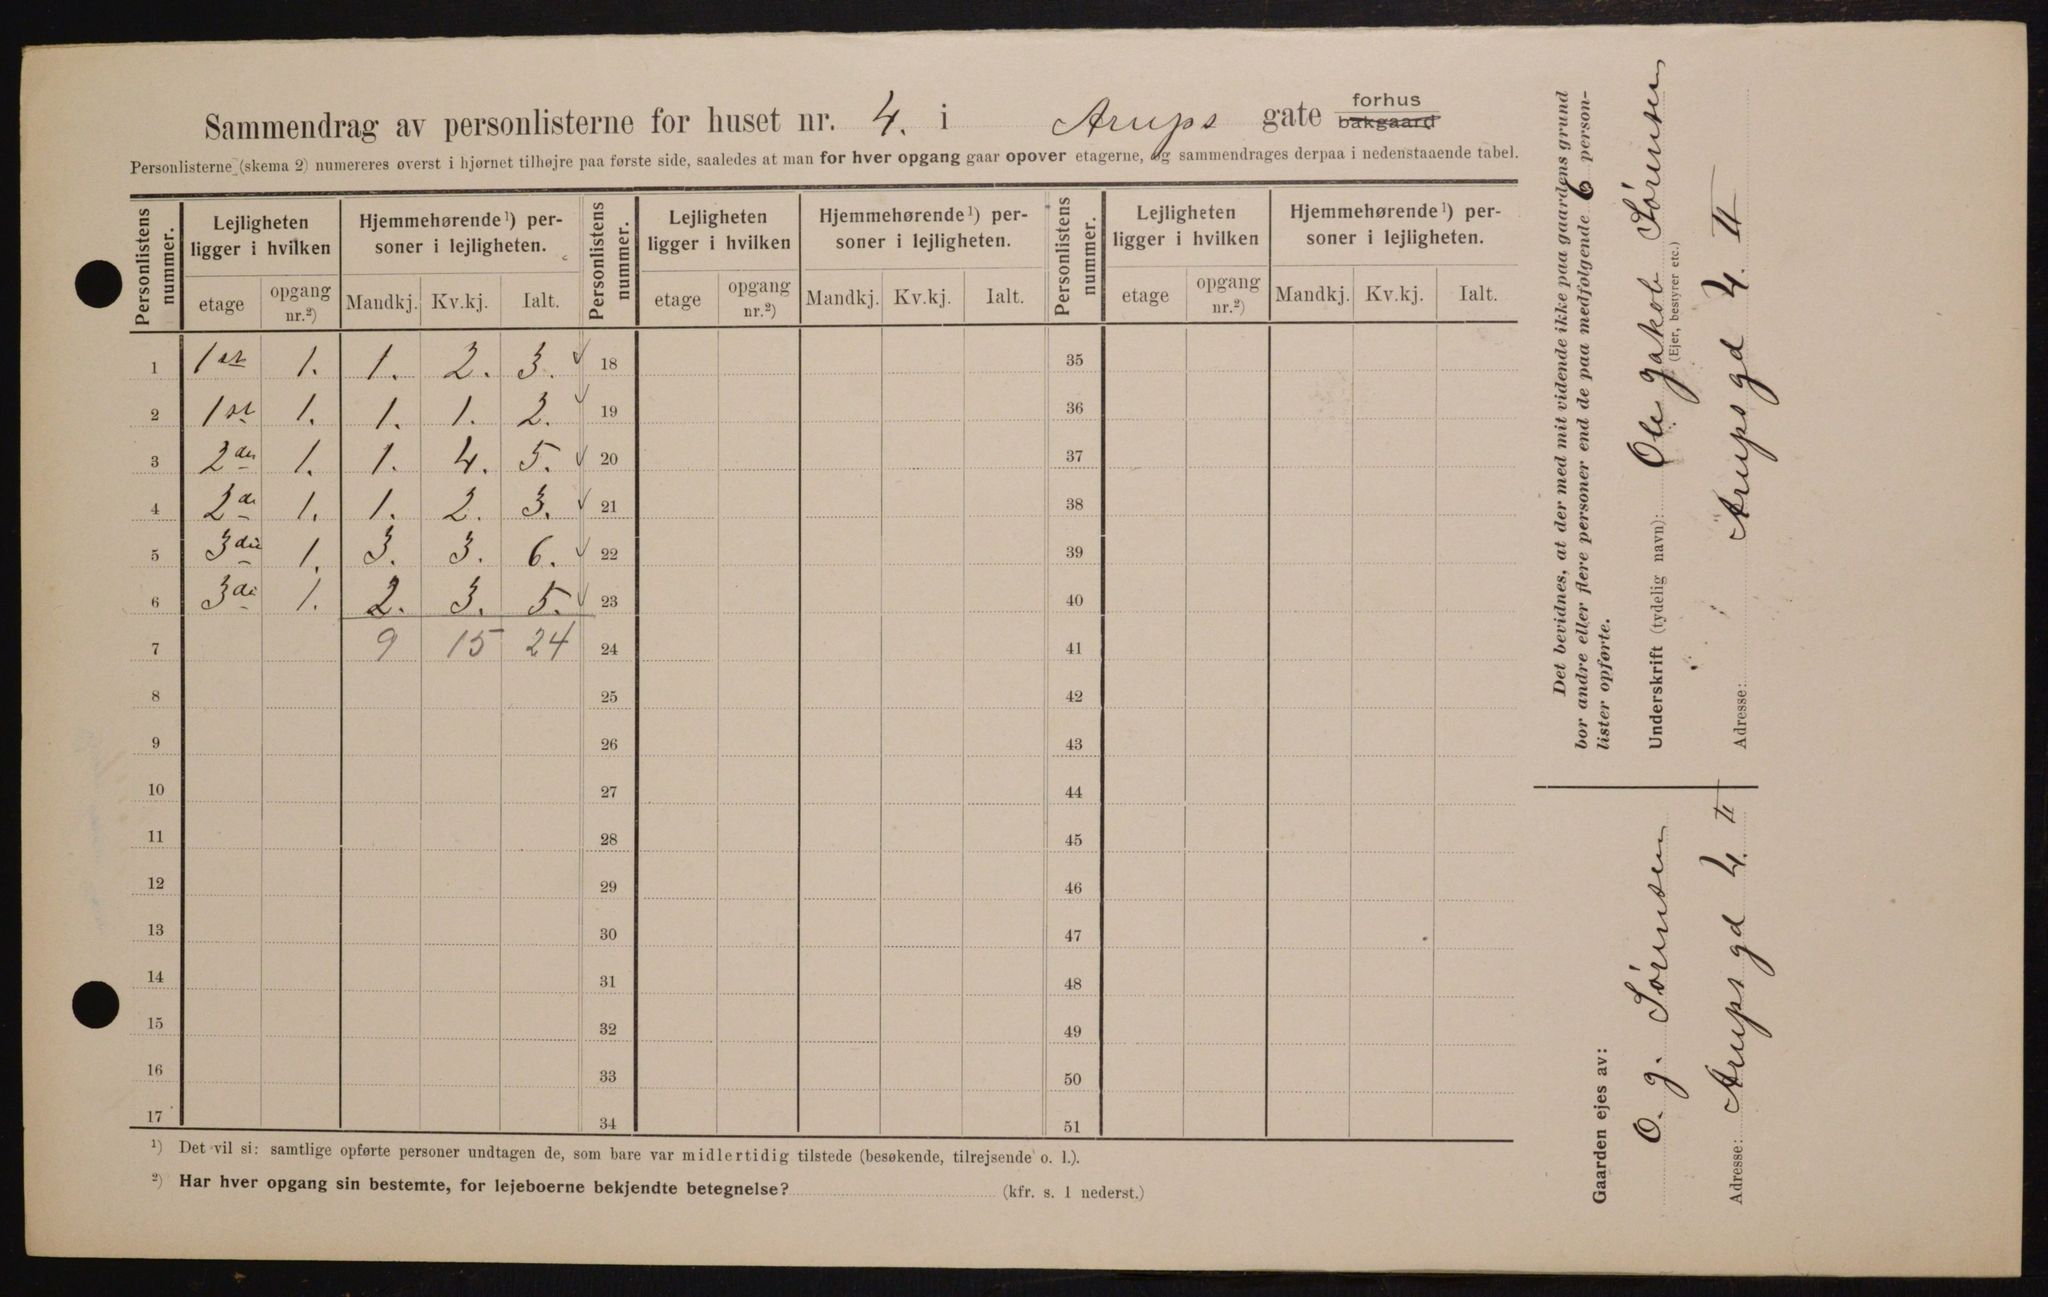 Sammendrag av personlisterne for huset nr. 4. i Arups gate forhus bakgaard
Personlisterne (skema 2) numereres øverst i hjørnet tilhøjre paa første side, saaledes at man for hver opgang gaar opover etagerne, og sammendrages derpaa i nedenstaaende tabel.
Personlistens nummer. Lejligheten ligger i hvilken Hjemmehørende¹) personer i lejligheten. Personlistens nummer. Lejligheten ligger i hvilken Hjemmehørende¹) personer i lejligheten. Personlistens nummer. Lejligheten ligger i hvilken Hjemmehørende¹) personer i lejligheten.
etage opgang nr.²) Mandkj. Kv.kj. Ialt. etage opgang nr.²) Mandkj. Kv.kj. Ialt. etage opgang nr.²) Mandkj. Kv.kj. Ialt.
1 1st 1. 1. 2. 3. 18 35
2 1st 1. 1. 1. 2. 19 36
3 2den 1. 1. 4. 5. 20 37
4 2de 1. 1. 2. 3. 21 38
5 3die 1. 3. 3. 6. 22 39
6 3di 1. 2. 3. 5. 23 40
7 9 15 24 24 41
8 25 42
9 26 43
10 27 44
11 28 45
12 29 46
13 30 47
14 31 48
15 32 49
16 33 50
17 34 51
¹) Det vil si: samtlige opførte personer undtagen de, som bare var midlertidig tilstede (besøkende, tilrejsende o. l.).
²) Har hver opgang sin bestemte, for lejeboerne bekjendte betegnelse? (kfr. s. 1 nederst.)
Det bevidnes, at der med mit vidende ikke paa gaardens grund
bor andre eller flere personer end de paa medfølgende 6 person-
lister opførte.
Underskrift (tydelig navn): Ole Jakob Sørensen
(Ejer, bestyrer etc.)
Adresse: Arups gd 4. II
Gaarden ejes av:
O. J. Sørensen
Adresse: Arups gd 4. II